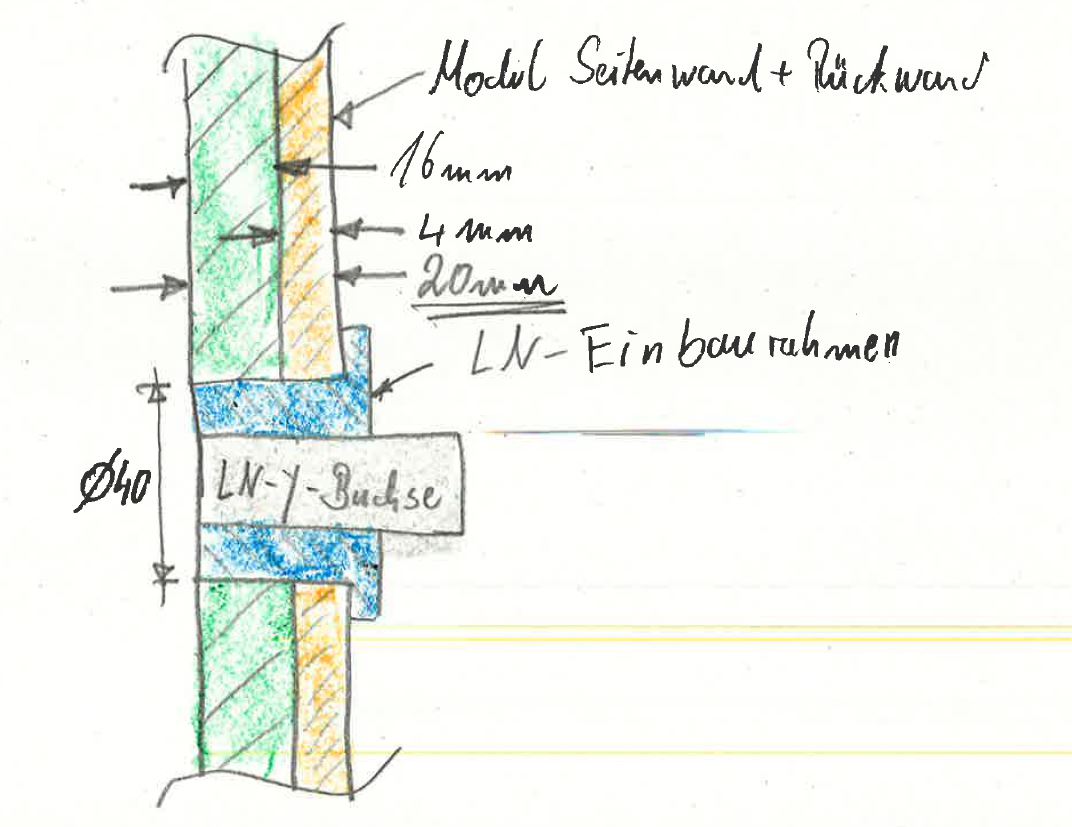 Modul Seitenwand + Rückwand
16mm
4mm
20mm
LN-Einbaurahmen
Ø40
LN-Y-Buchse